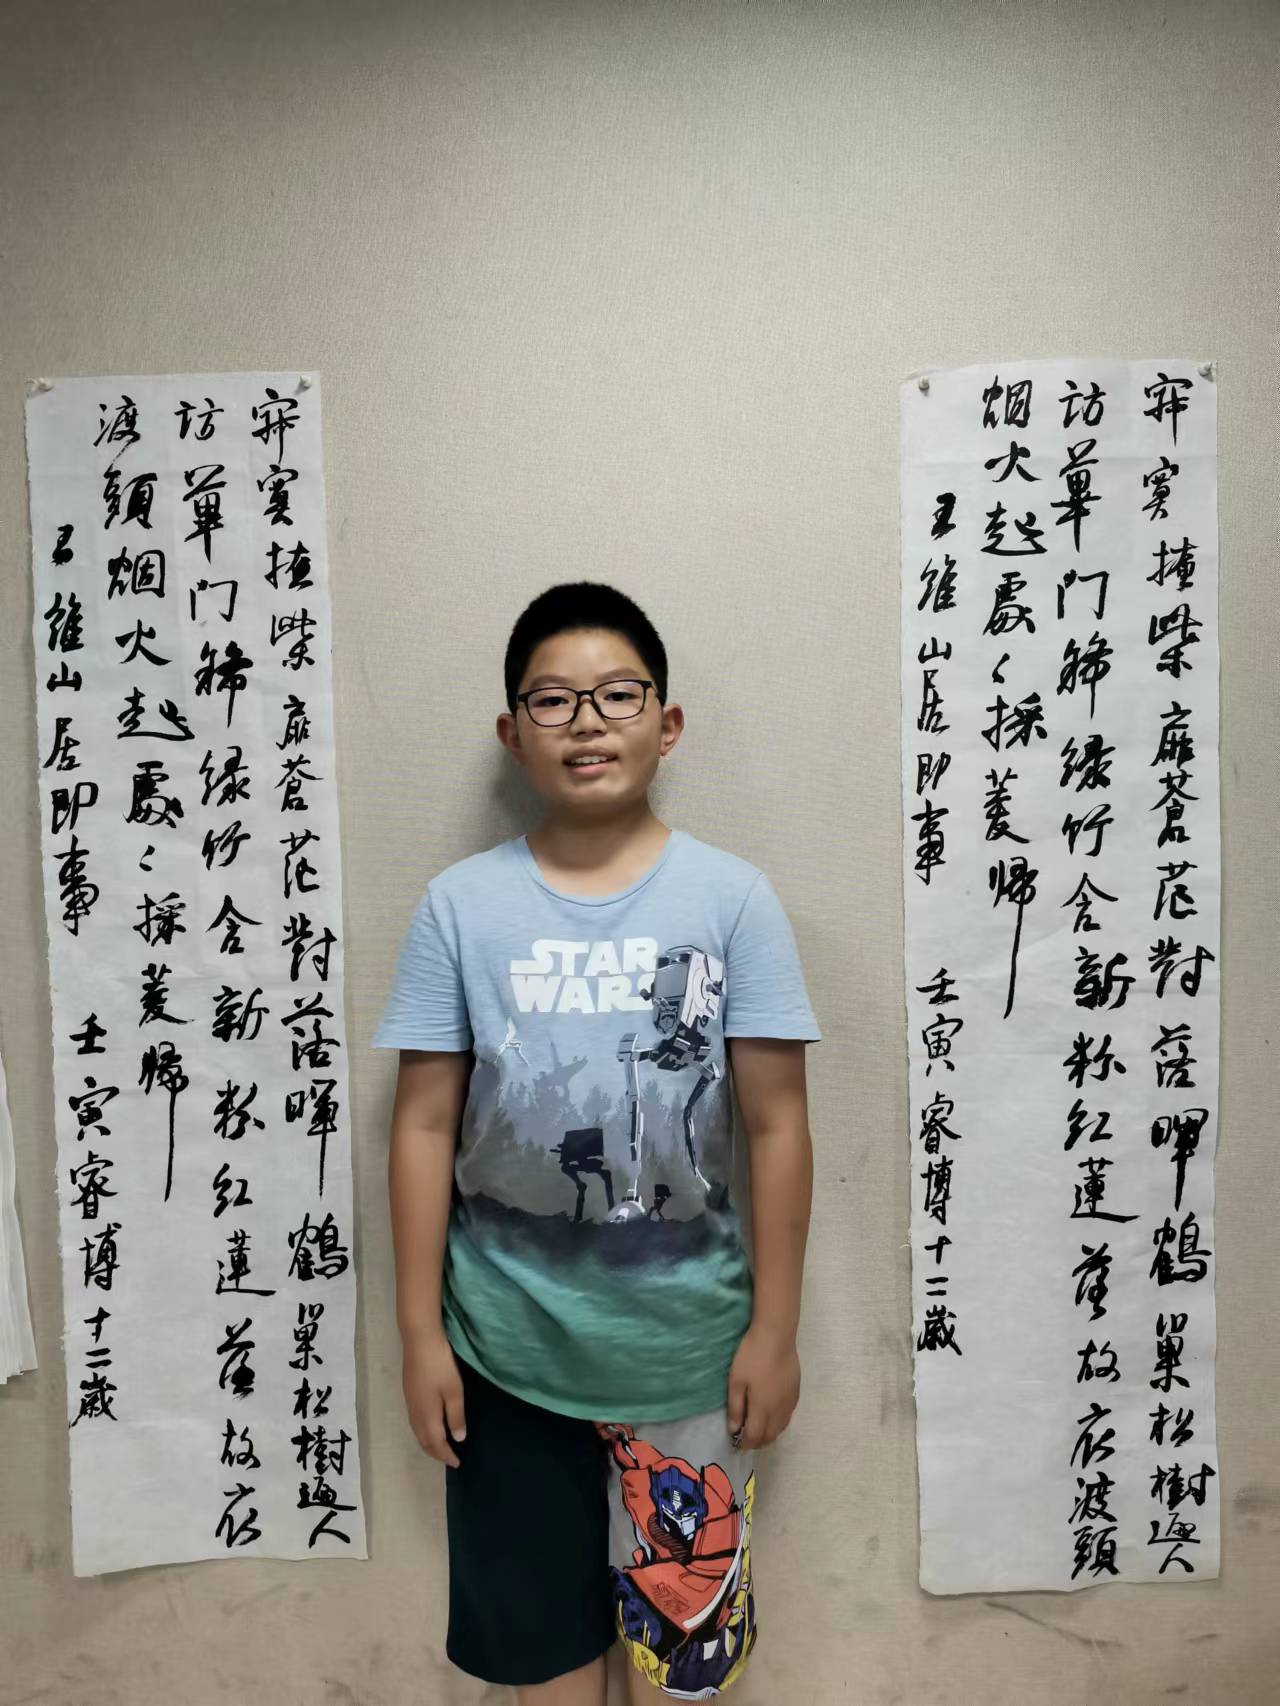 寂寞掩柴扉蒼茫對落暉鶴巢松樹遍人
訪蓽門稀綠竹含新粉紅蓮落故衣
渡頭烟火起處〻採菱歸
王維山居即事 壬寅睿博十二歲
STAR
WARS
寂寞掩柴扉蒼茫對落暉鶴巢松樹遍人
訪蓽門稀綠竹含新粉紅蓮落故衣渡頭
烟火起處〻採菱歸
王維山居即事 壬寅睿博十二歲